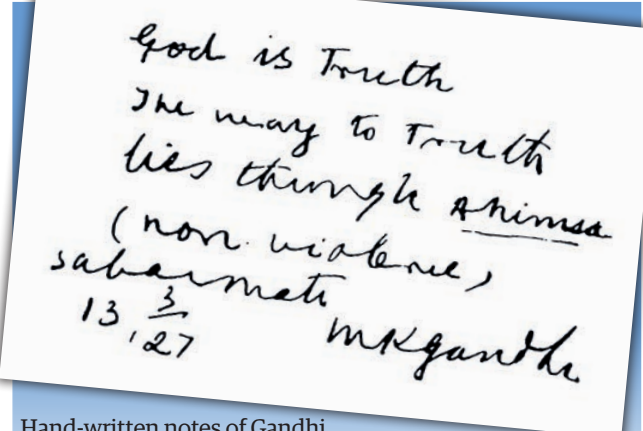 God is Truth
The way to Truth
lies through ahimsa
(non violence)
Sabarmati
13 3
'27
MKGandhi
Hand-written notes of Gandhi